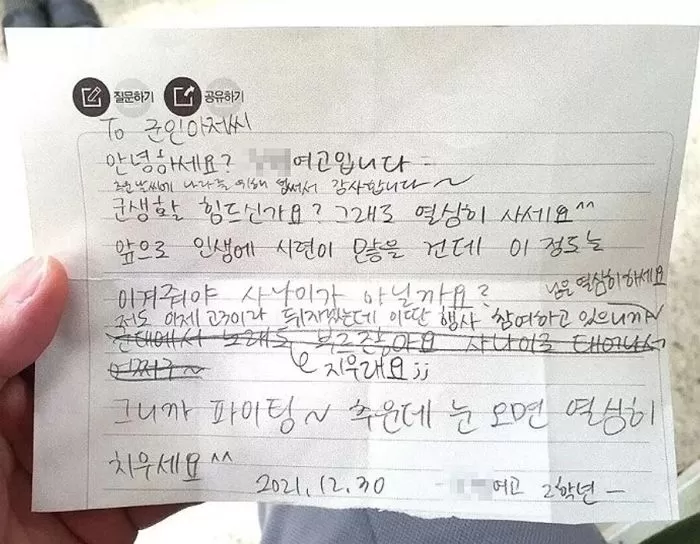 질문하기 공유하기
To 군인아저씨
안녕하세요? 여고입니다
추운날씨에 나라를 위해 힘써서 감사합니다~
군생활 힘드신가요? 그래도 열심히 사세요^^
앞으로 인생에 시련이 많을 건데 이 정도는
이겨줘야 사나이가 아닐까요?
저도 이제 고3이라 뒤지겠는데 이딴 행사 참여하고 있으니까~
님은 열심히하세요
군대에서 노래도 부르잖아요 사나이로 태어나서
어쩌구~
지우래요;;
그니까 파이팅~ 추운데 눈 오면 열심히
치우세요^^
2021.12.30 여고 2학년-